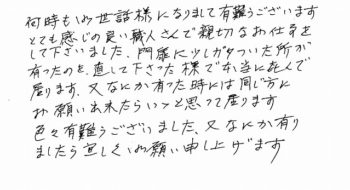 何時もお世話様になりまして有難うございます
とても感じの良い職人さんで親切なお仕事を
して下さいました、門扉に少しガタついた所が
有ったのを、直して下さった様で本当に喜んで
居ります、又なにか有った時には同じ方に
お願い出来たらいゝと思って居ります
色々有難うございました、又なにか有り
ましたら宜しくお願い申し上げます